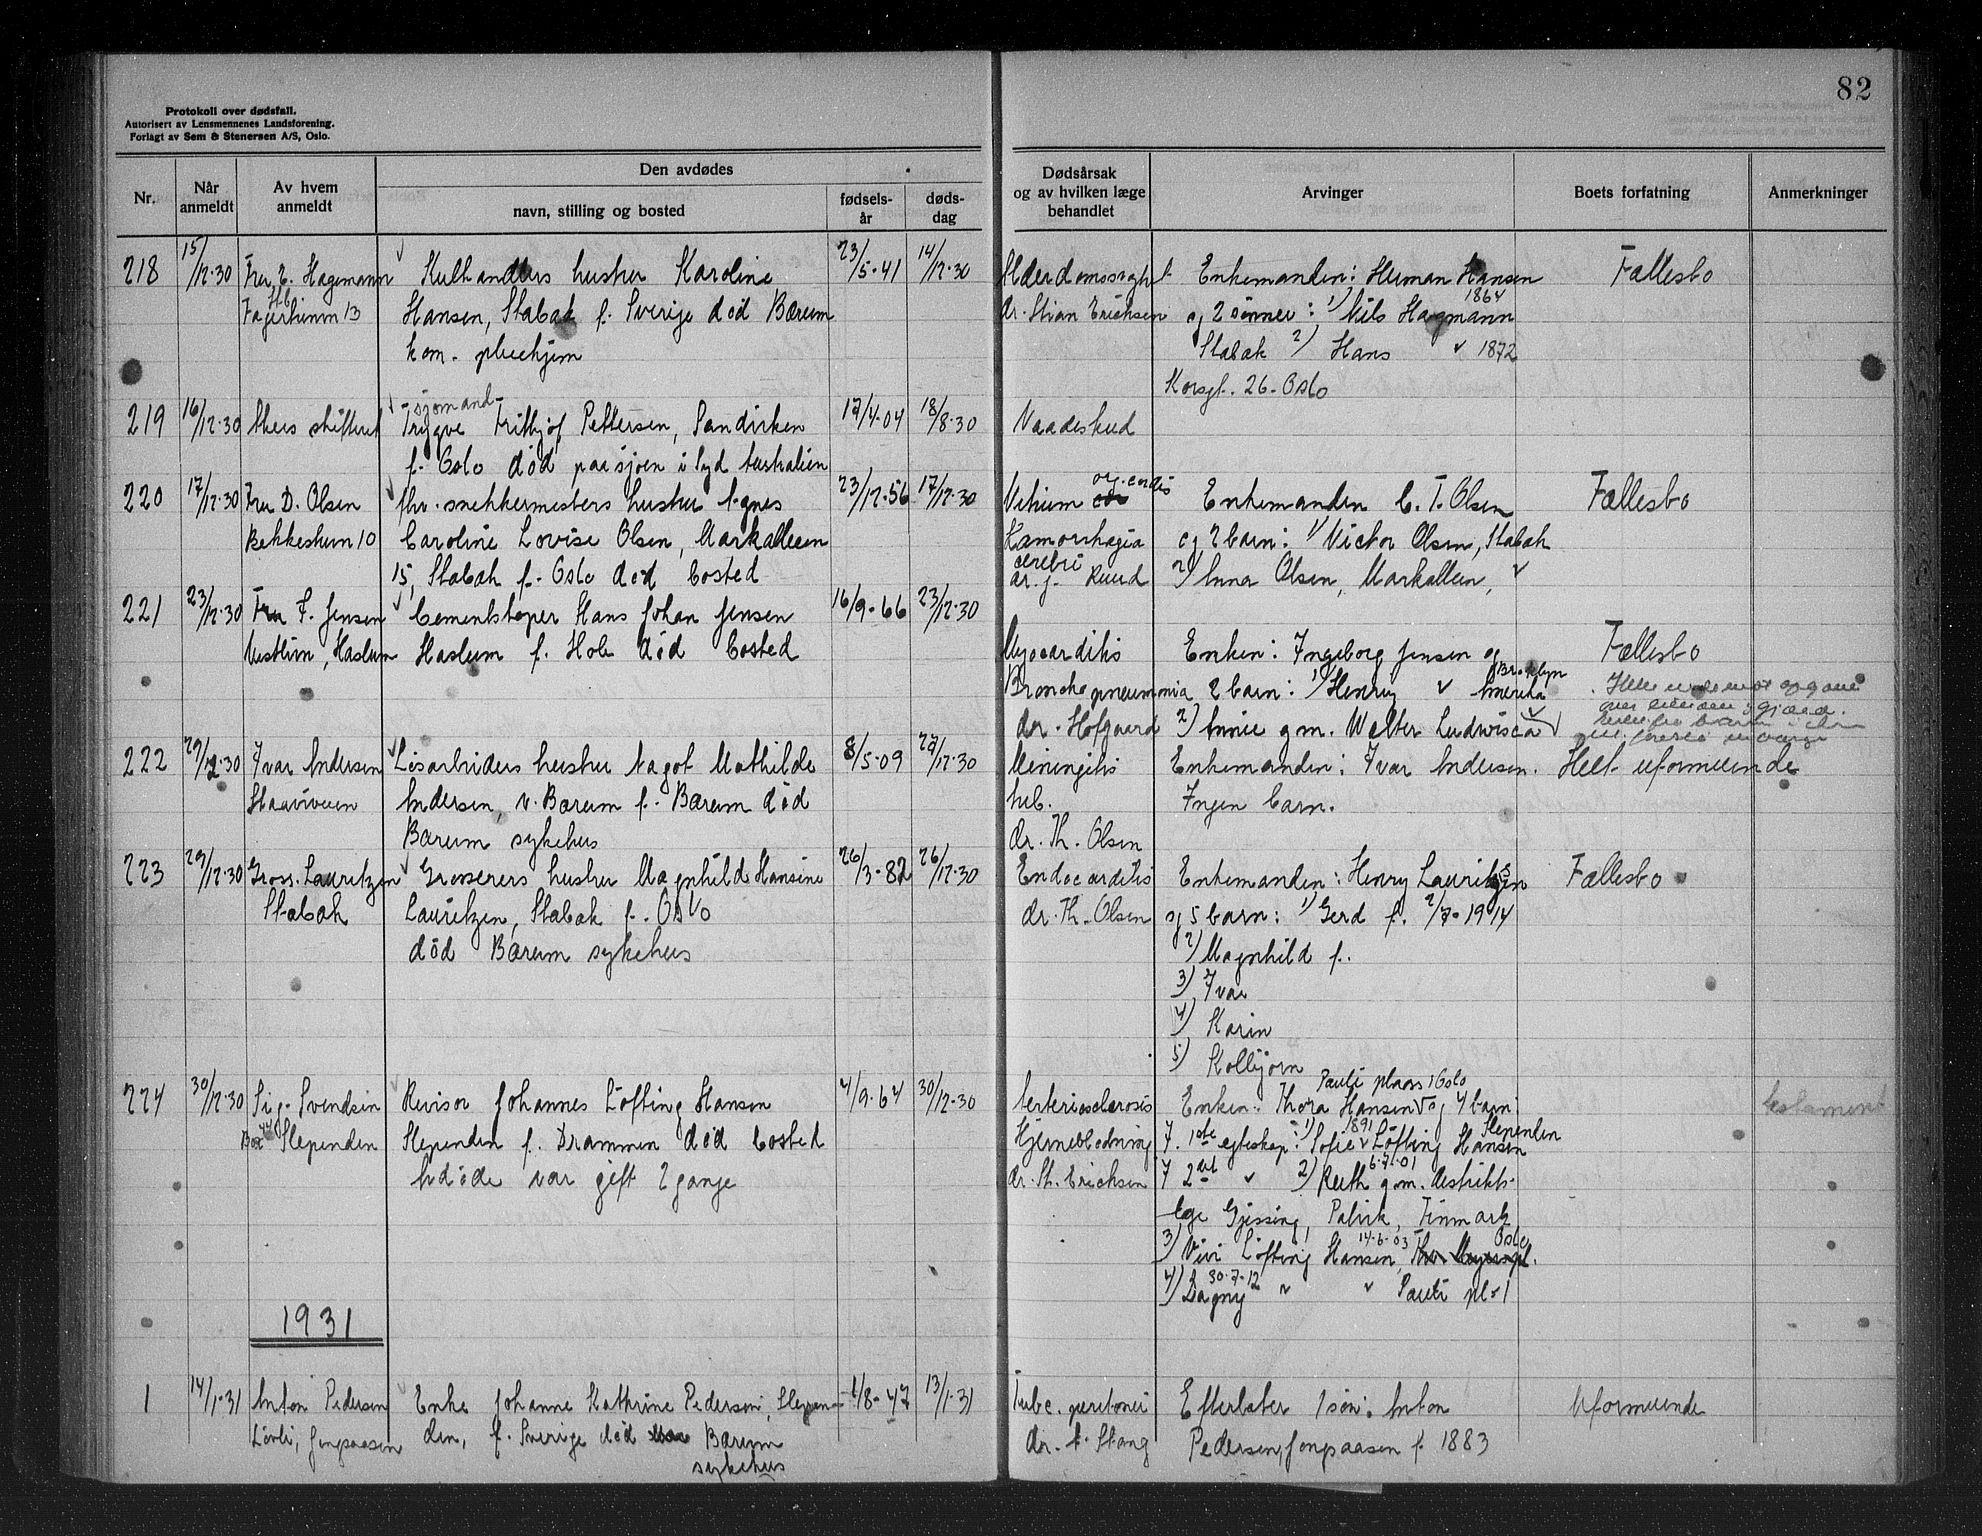 82
Protokoll over dødsfall.
Autorisert av Lensmennenes Landsforening.
Forlagt av Sem & Stenersen A/S, Oslo.
Nr.
Når anmeldt
Av hvem anmeldt
Den avdødes
navn, stilling og bosted
fødselsår
dødsdag
Dødsårsak og av hvilken læge behandlet
Arvinger
Boets forfatning
Anmerkninger
218
15/12-30
Fru E. Hagemann
13
Kulhandlers hustru Karoline
Hansen, Stabæk f. Sverige død Bærum
kom. pleiehjem
23/5-41
14/12-30
Alderdomssvaghet
dr. Stian Erichsen
Enkemanden: Herman Hansen
og 2 sønner: 1) Nils Hagmann 1864
Stabæk 2) Hans " 1872
Korsgt. 26 - Oslo
Fællesbo
219
16/12-30
Akers skifteret
- sjømand -
Trygve Fritjof Pettersen, Sandviken
f. Oslo død paa sjøen i Syd Australien
17/4-04
18/8-30
Vaadeskud
220
17/12-30
Fru D. Olsen
Bekkeshum 10
fhv. snekkermesters hustru Agnes
Caroline Lovise Olsen, Markalleen
15, Stabæk f. Oslo død bosted
23/12-56
17/12-30
Vitium org. cordis
Hæmorrhagia
cerebri
dr. J. Ruud
Enkemanden C. T. Olsen
og 2 barn: 1) Victor Olsen, Stabæk
2) Anna Olsen, Markalleen, "
Fællesbo
221
23/12-30
Fru F. Jensen
Vestlivn, Haslum
Cementstøper Hans Johan Jensen
Haslum f. Hole død bosted
16/9-66
23/12-30
Myocarditis
Bronchopneumonia
dr. Hofgaard
Enken: Ingeborg Jensen og
2 barn: 1) Henry " Brooklyn Amerika
2) Annie g.m. Walter Ludwisca "
Fællesbo
222
29/12-30
Ivar Andersen
Staviveien
Løsarbeiders hustru Aagot Mathilde
Andersen, v. Bærum f. Bærum død
Bærum sykehus
8/5-09
27/12-30
Meningitis
tub.
dr. Th. Olsen
Enkemanden: Ivar Andersen.
Ingen barn.
Helt uformuende
223
29/12-30
Gross. Lauritzen
Stabæk
Grosserers hustru Magnhild Hansine
Lauritzen, Stabæk f. Oslo
død Bærum sykehus
26/3-82
26/12-30
Endocarditis
dr. Th. Olsen
Enkemanden: Henry Lauritzen
og 5 barn: 1) Gerd f. 2/7-1914
2) Magnhild f.
3) Ivar
4) Karin
5) Kolbjørn
Fællesbo
224
30/12-30
Sig. Svendsen
Box 44 Slependen
Revisor Johannes Løfting Hansen
Slependen f. Drammen død bosted
Avdøde var gift 2 gange
4/9-64
30/12-30
Arteriosclerosis
Hjerneblødning
dr. St. Erichsen
Pauli plass 1 Oslo
Enken: Thora Hansen og 4 barn:
I 1ste egteskap: 1) Sofie Løfting Hansen 1891 Slependen
I 2det " 2) Ruth g.m. distrikts- 6-7-01
læge Gjessing, Talvik, Finmark
3) Vivi Løfting Hansen, 14-6-03 Oslo
4) Dagny 30-7-12 " " Pauli pl. 1
testament
1931
1
14/1-31
Anton Pedersen
Løvli, Jongsaasen
Enke Johanne Kathrine Pedersen, Slepen-
den, f. Sverige død Bærum
sykehus
1/8-47
13/1-31
Tubc. peritonei
dr. A. Stang
Efterlater 1 søn: Anton
Pedersen, Jongsaasen f. 1883
Uformuende